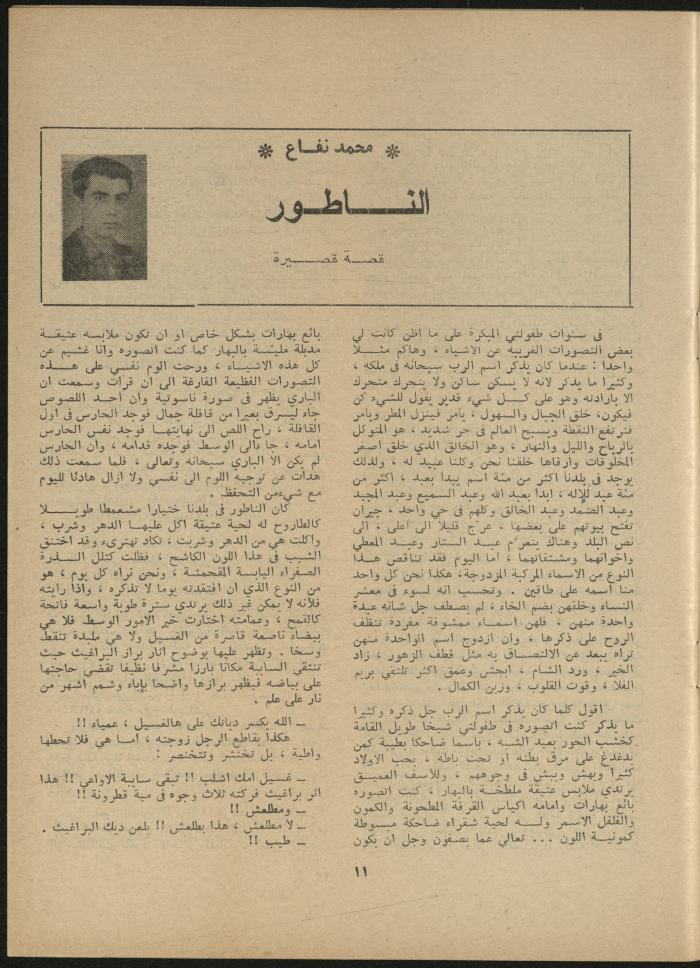 * محمد نفاع *
الناطور
قصة قصيرة
في سنوات طفولتي المبكرة على ما اظن كانت لي
بعض التصورات الغريبة عن الاشياء ، وهاكم مثلا
واحدا : عندما كان يذكر اسم الرب سبحانه في ملكه ،
وكثيرا ما يذكر لانه لا يسكن ساكن ولا يتحرك متحرك
الا بارادته وهو على كل شيء قدير يقول للشيء كن
فيكون، خلق الجبال والسهول ، يأمر فينزل المطر ويأمر
فترتفع النقطة ويسبح العالم في حر شديد ، هو المتوكل
بالرياح والليل والنهار ، وهو الخالق الذي خلق اصغر
المخلوقات وارقاها خلقنا نحن وكلنا عبيد له ، ولذلك
يوجد في بلدنا اكثر من مئة اسم يبدا بعبد ، اكثر من
مئة عبد للإله ، ابدا بعبد الله وعبد السميع وعبد المجيد
وعبد الصمد وعبد الخالق وكلهم في حي واحد ، جيران
تفتح بيوتهم على بعضها ، عرج قليلا الى اعلى . الى
نص البلد وهناك يتعرم عبد الستار وعبد المعطي
واخوانهما ومشتقاتهما ، اما اليوم فقد تناقص هذا
النوع من الاسماء المركبة المزدوجة، هكذا نحن كل واحد
منا اسمه على طاقين . وتحسب انه لسوء في معشر
النساء وخلقهن بضم الخاء ، لم يصطف جل شانه عبدة
واحدة منهن ، فلهن اسماء ممشوقة مفردة تنظف
الروح على ذكرها ، وان ازدوج اسم الواحدة منهن
تراه يبعد عن الالتصاق به مثل قطف الزهور ، زاد
الخير ، ورد الشام ، ابحش وعمق اكثر تلتقي بريم
الفلا ، وقوت القلوب ، وزين الكمال .
اقول كلما كان يذكر اسم الرب جل ذكره وكثيرا
ما يذكر كنت اتصوره في طفولتي شيخا طويل القامة
كخشب الحور بعيد الشبه ، باسما ضاحكا بطيبة كمن
يدغدغ على مرق بطنه أو تحت باطه ، يحب الاولاد
كثيرا ويهش ويبش في وجوههم ، وللأسف العميق
يرتدي ملابس عتيقة ملطخة بالبهار ، كنت اتصوره
بائع بهارات وامامه اكياس القرفة المطحونة والكمون
والفلفل الاسمر وله لحية شقراء ضاحكة مبسوطة
كمونية اللون ... تعالى عما يصفون وجل ان يكون
بائع بهارات بشكل خاص او ان تكون ملابسه عتيقة
مدبلة مليئة بالبهار كما كنت اتصوره وانا غشيم عن
كل هذه الاشياء ، ورحت الوم نفسي على هذه
التصورات الفظيعة الفارغة الى ان قرات وسمعت ان
الباري يظهر في صورة ناسوتية وان احد اللصوص
جاء ليسرق بعيرا من قافلة جمال فوجد الحارس في اول
القافلة ، راح اللص الى نهايتها فوجد نفس الحارس
امامه ، جاء الى الوسط فوجده قدامه ، وان الحارس
لم يكن الا الباري سبحانه وتعالى ، فلما سمعت ذلك
هدأت عن توجيه اللوم الى نفسي ولا ازال هادئا لليوم
مع شيء من التحفظ .
كان الناطور في بلدنا ختيارا مشعمطا طويلا
كالطاروح له لحية عتيقة اكل عليها الدهر وشرب ،
واكلت هي من الدهر وشربت ، تكاد تهترىء وقد اختنق
الشيب في هذا اللون الكاشح ، فظلت كتلل الذرة
الصفراء اليابسة المقحمشة ، ونحن نراه كل يوم ، هو
من النوع الذي ان افتقدته يوما لا تذكره ، واذا رايته
فلأنه لا يمكن غير ذلك يرتدي سترة طويلة واسعة فاتحة
كالقمح ، وعمامته اختارت خير الامور الوسط فلا هي
بيضاء ناصعة قاصرة من الغسيل ولا هي ملبدة تنقط
وسخا . وتظهر عليها بوضوح اثار براز البراغيث حيث
تنتقي السايبة مكانا بارزا مشرفا نظيفا تقضي حاجتها
على بياضه فيظهر برازها واضحا بإباء وشمم اشهر من
نار على علم .
ــ الله يكسر دياتك على هالغسيل ، عمياء !!
هكذا يقاطع الرجل زوجته ، أما هي فلا تحطها
واطية ، بل تخنشر وتتخنصر :
ــ غسيل امك اشلب !! تبقى سايبة الاواعي !! هذا
اثر براغيث فركته ثلاث وجوه في مية قطرونة !!
ــ ومطلعش !!
ــ لا مطلعش ، هذا بطلعش !! يلعن ديك البراغيث .
ــ طيب !!
١١